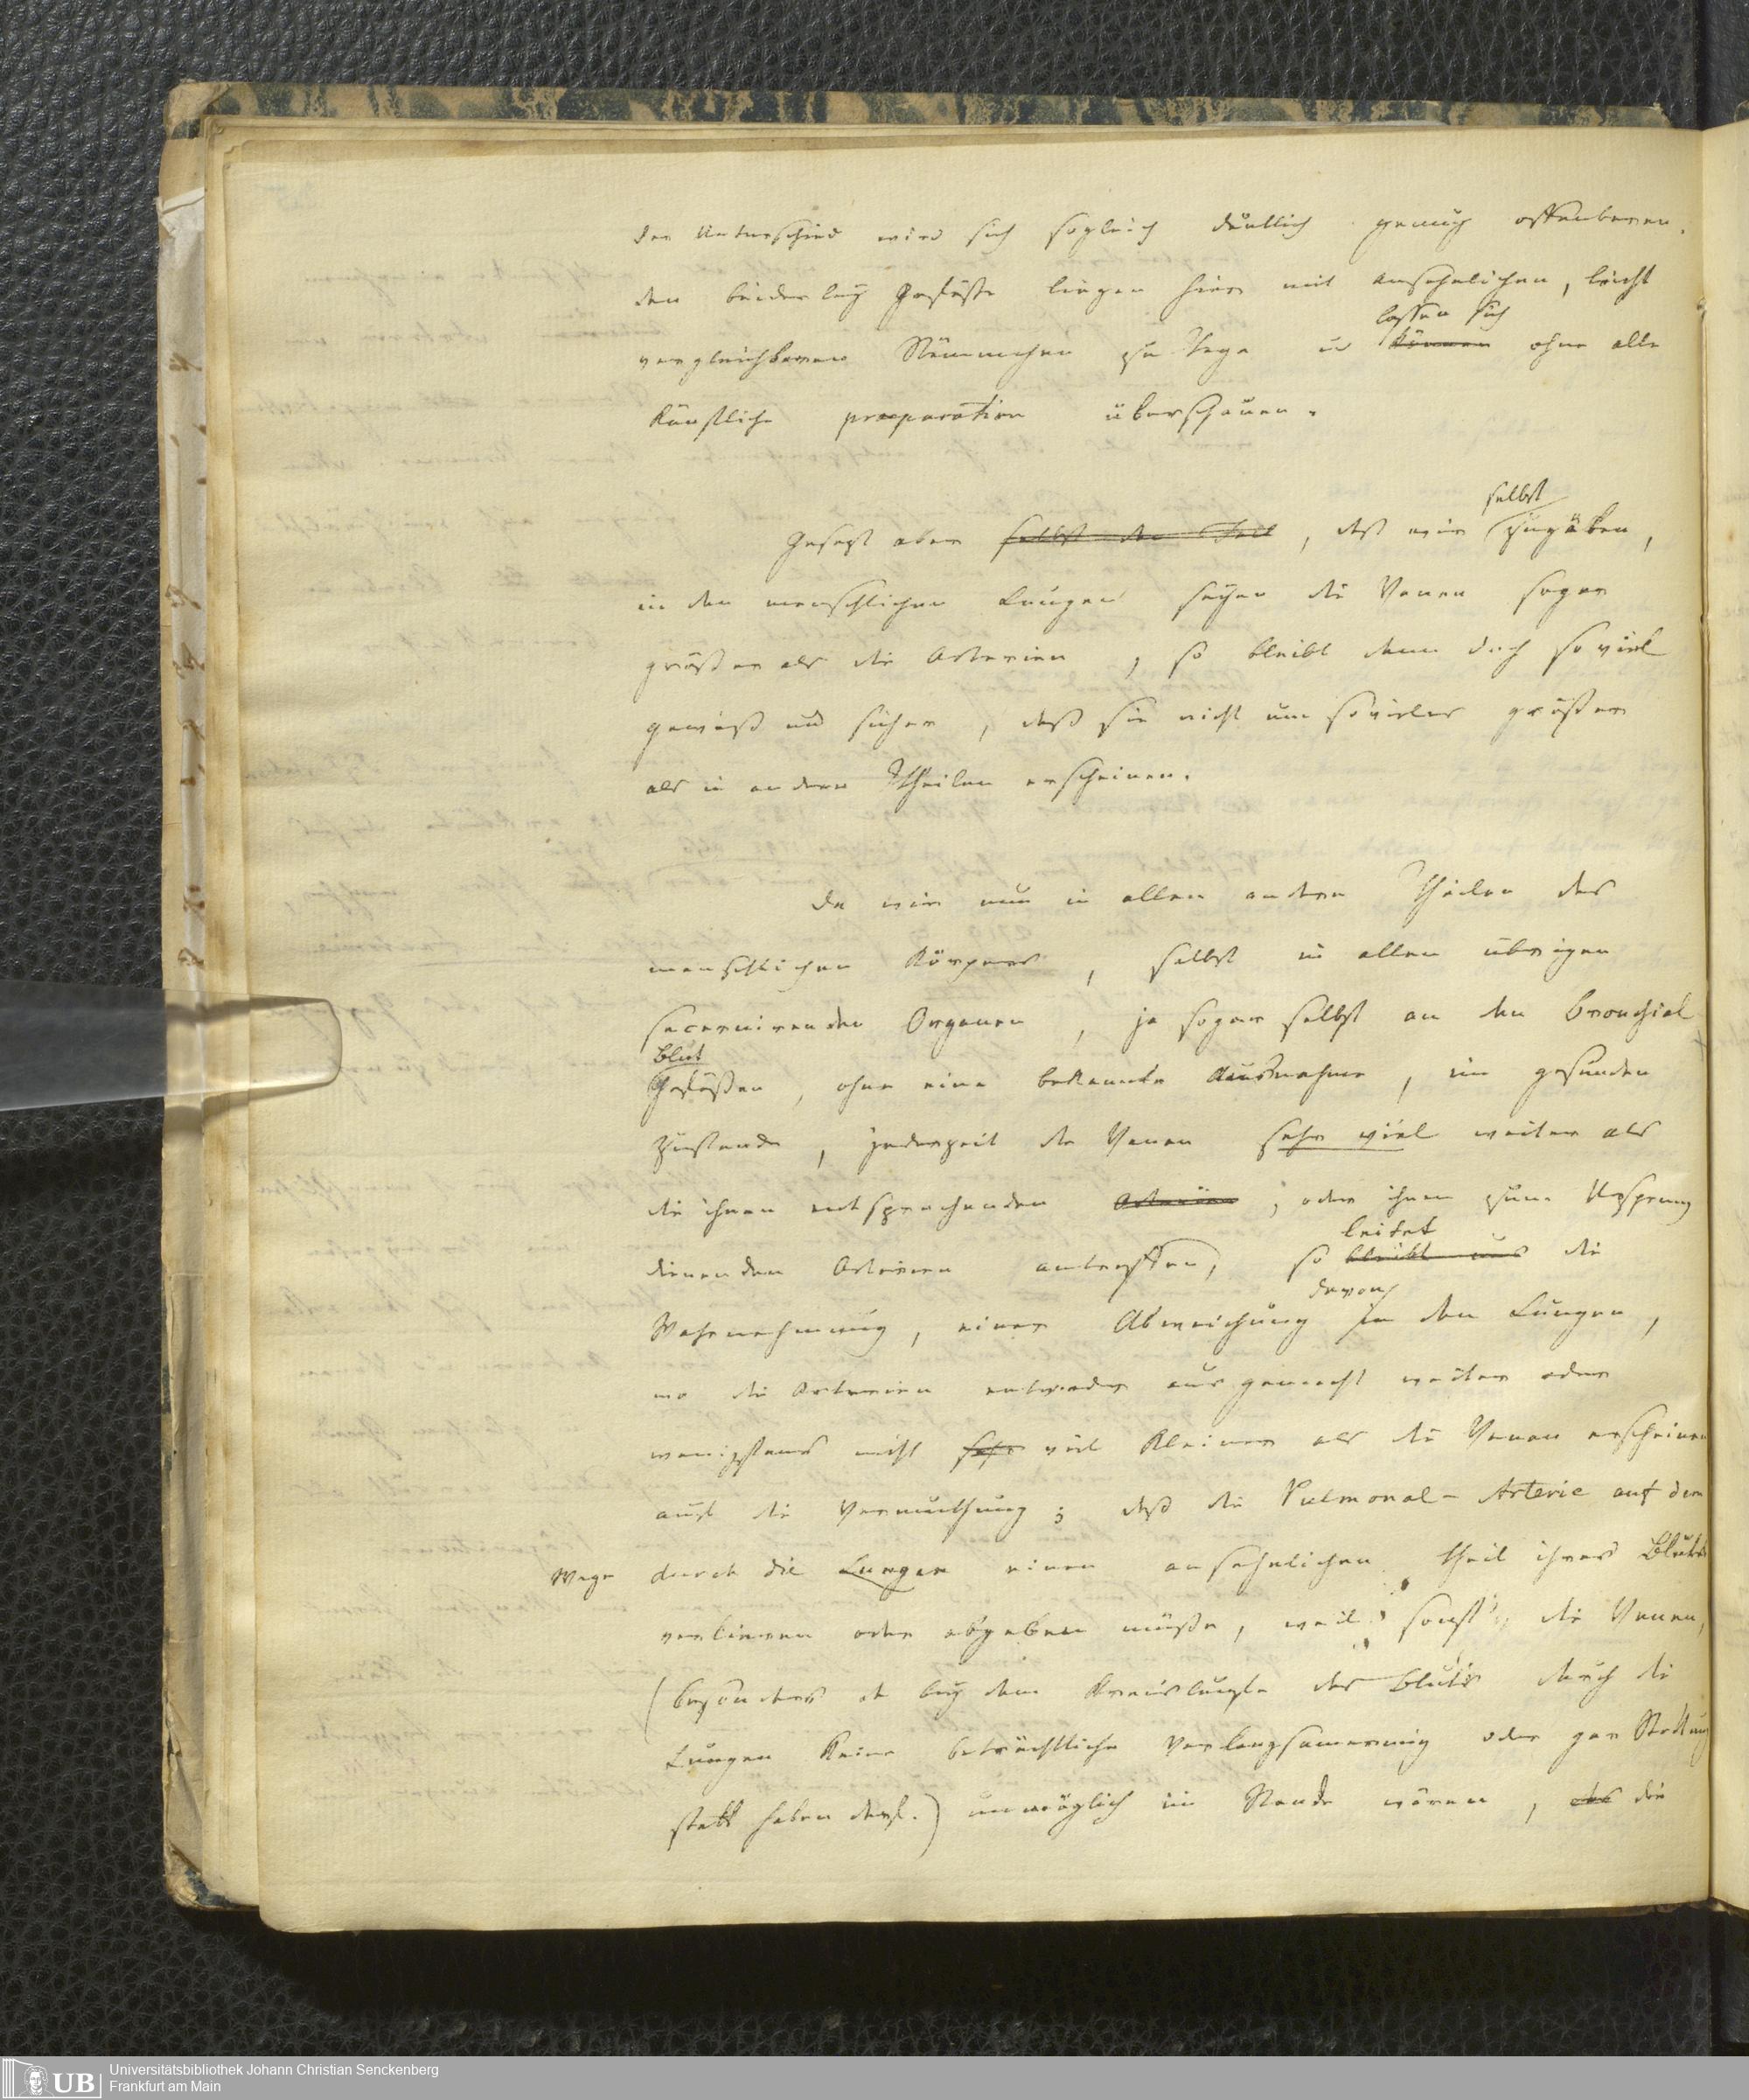 der Unterschied wird sich sogleich deutlich genug offenbaren.
den beiderley Gefäße liegen hier mit ansehnlichen, leicht
lassen sich
vergleichbaren Stämmchen zu Tage u können ohne alle
künstliche praeparation überschauen.
selbst
Gesezt aber selbst den Fall, daß wir zugäben,
in den menschlichen Lungen seyen die Venen sogar
größer als die Arterien, so bleibt denn doch so viel
gewiß und sicher, daß sie nicht um so vieles größer
als in andern Theilen erscheinen.
Da wir nun in allen andern Theilen des
menschlichen Körpers, selbst in allen übrigen
secernirenden Organen, ja sogar selbst an den Bronchial
Blut
Gefäßen, ohne eine bekannte Ausnahme, im gesunden
Zustande, jederzeit die Venen sehr viel weiter als
die ihnen entsprechenden Arterien, oder ihnen zum Ursprung
leitet
dienenden Arterien antreffen, so bleibt uns die
davon
Wahrnehmung, einer Abweichung in den Lungen,
wo die Arterien entweder ausgemacht weiter oder
wenigstens nicht sehr viel kleiner als die Venen erscheinen
auf die Vermuthung; daß die Pulmonal-Arterie auf dem
Wege durch die Lungen einen ansehnlichen Theil ihres Bluts
verlieren oder abgeben müße, weil sonst, die Venen,
(besonders da bey dem Kreislaufe des Bluts durch die
Lungen keine beträchtliche Verlangsamerung oder gar Stockung
statt haben darf.) unmöglich im Stande wären, das die
Universitätsbibliothek Johann Christian Senckenberg
Frankfurt am Main
UB